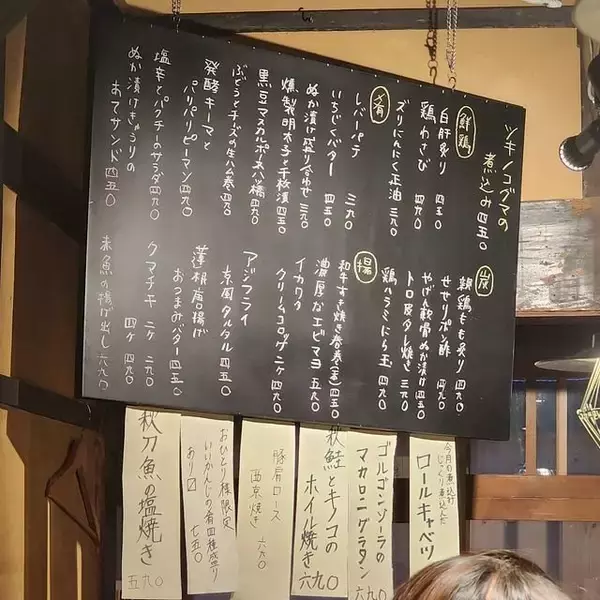 ツキノコグマの
煮込み 四五〇
鮮鶏
白肝炙り 四五〇
鶏わさび 四九〇
ズリにんにく正油 三九〇
肴
レバーパテ 三九〇
いちじくバター 四五〇
ぬか漬け盛り合わせ 三九〇
燻製明太子と千枚漬 四五〇
黒豆マスカルポーネ八ツ橋 四九〇
ぶどうとチーズの生ハム巻 四九〇
発酵キーマと
パリパリピーマン 四九〇
塩辛とパクチーのサラダ 四五〇
ぬか漬けきゅうりの
おてサンド 四五〇
炭
朝鶏もも炙り 四九〇
せせりポン酢 四九〇
やげん軟骨ぬか漬け 四五〇
トロ皮タレ焼き 三九〇
鶏ハラミにら玉 四九〇
揚
和牛すき焼き春巻(一本) 四五〇
濃厚なエビマヨ 五九〇
イカワタ
クリームコロッケ 二ケ 四九〇
アジフライ
京風タルタル 四五〇
蓮根唐揚げ
おつまみバター 四五〇
クマチキ 二ケ 二九〇
四ケ 四九〇
赤魚の揚げ出し 六九〇
今月の煮込み
じっくり煮込んだ
ロールキャベツ
ゴルゴンゾーラの
マカロニグラタン 六九〇
秋鮭とキノコの
ホイル焼き 六九〇
豚肩ロース
西京焼き 六九〇
おひとり様限定
いいかんじの肴四種盛り
あり〼 七五〇
秋刀魚の塩焼き 五九〇